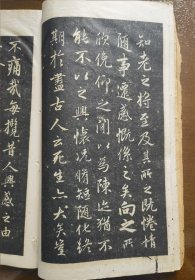 知老之將至及其所之既惓情
隨事遷感慨係之矣向之所
欣俛仰之閒以為陳迹猶不
能不以之興懷況脩短隨化終
期於盡古人云死生亦大矣豈
不痛哉每攬昔人興感之由